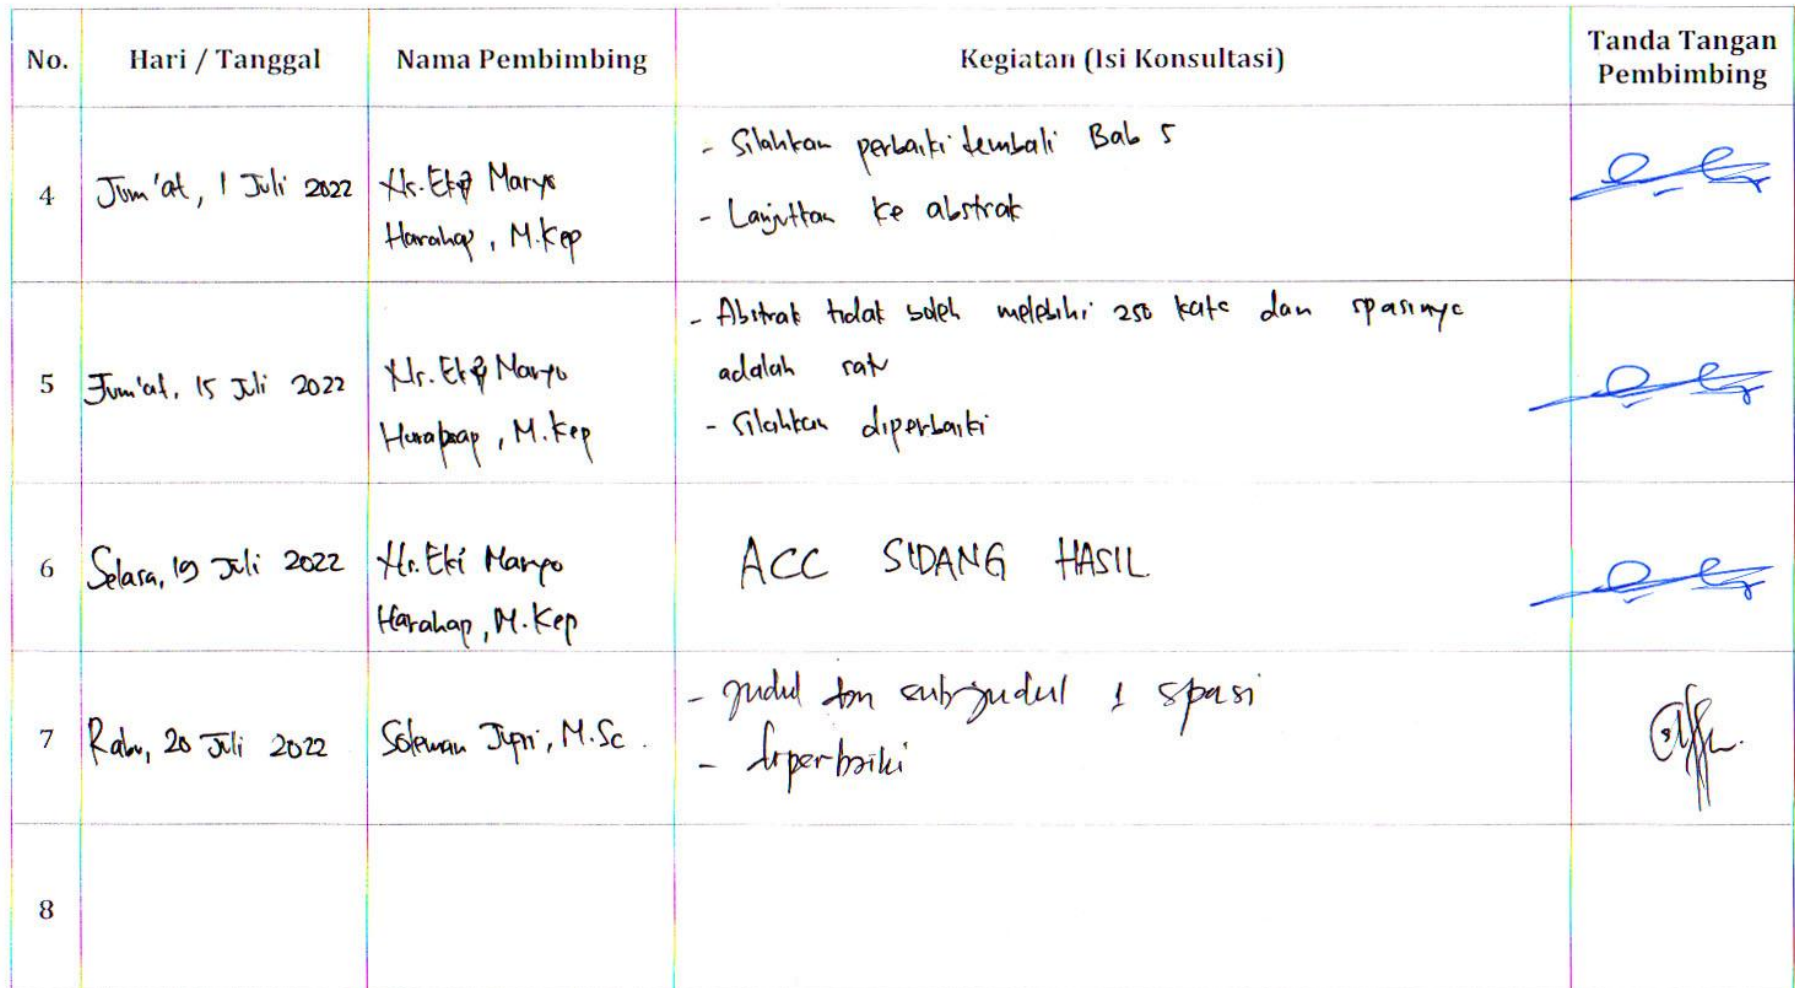 No. Hari / Tanggal Nama Pembimbing Kegiatan (Isi Konsultasi) Tanda Tangan
Pembimbing
4 Jum'at, 1 Juli 2022 Ns. Eki Maryo
Harahap, M.Kep
- Silahkan perbaiki kembali Bab 5
- Lanjutkan ke abstrak
5 Jum'at, 15 Juli 2022 Ns. Eki Maryo
Harahap, M.Kep
- Abstrak tidak boleh melebihi 250 kata dan spasinya
adalah satu
- Silahkan diperbaiki
6 Selasa, 19 Juli 2022 Ns. Eki Maryo
Harahap, M.Kep
ACC SIDANG HASIL
7 Rabu, 20 Juli 2022 Soleman Jupri, M.Sc.
- Judul dan sub judul 1 spasi
- diperbaiki
8